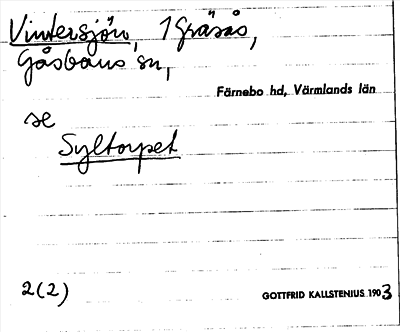 Vintersjön, 1 Gräsås,
Gåsborns sn,
Färnebo hd, Värmlands län
se
Syltorpet
2(2)
GOTTFRID KALLSTENIUS 1903